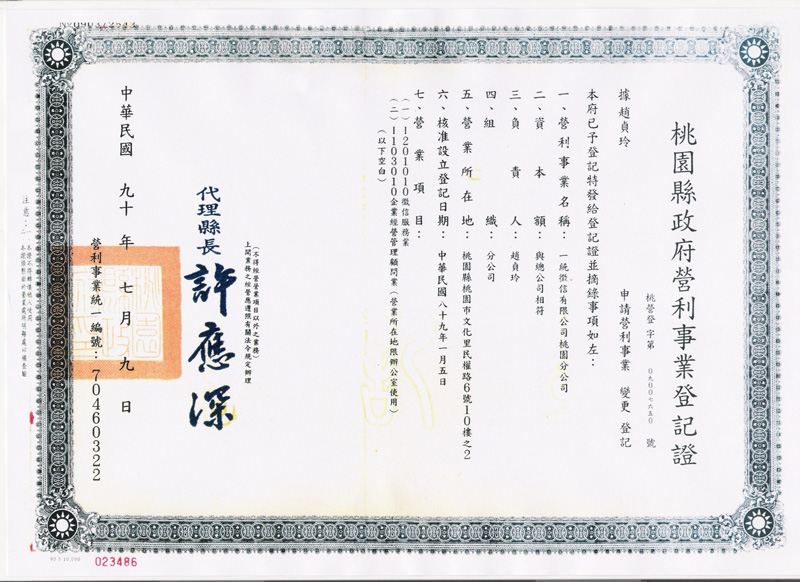 桃園縣政府營利事業登記證
桃營登字第 0九00七六五0 號
據趙貞玲 申請營利事業 變更 登記
本府已予登記特發給登記證並摘錄事項如左：
一、營利事業名稱：一統徵信有限公司桃園分公司
二、資本額：與總公司相符
三、負責人：趙貞玲
四、組織：分公司
五、營業所在地：桃園縣桃園市文化里民權路6號10樓之2
六、核准設立登記日期：中華民國八十九年一月五日
七、營業項目：
(一)I201010徵信服務業
(二)I103010企業經營管理顧問業(營業所在地限辦公室使用)
(以下空白)
(不得經營登業項目以外之業務)
上開業務之經營應遵照有關法令規定辦理
代理縣長 許應深
營利事業統一編號：70460322
中華民國 九十 年 七月 九 日
注意：
023486